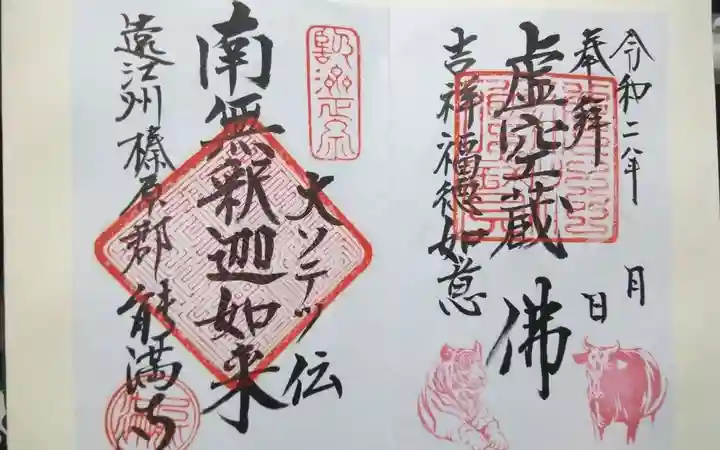 令和二年
月
日
奉拝
虚空蔵佛
吉祥福徳如意
大ソテツ伝
南無釈迦如来
遠江州榛原郡能満寺